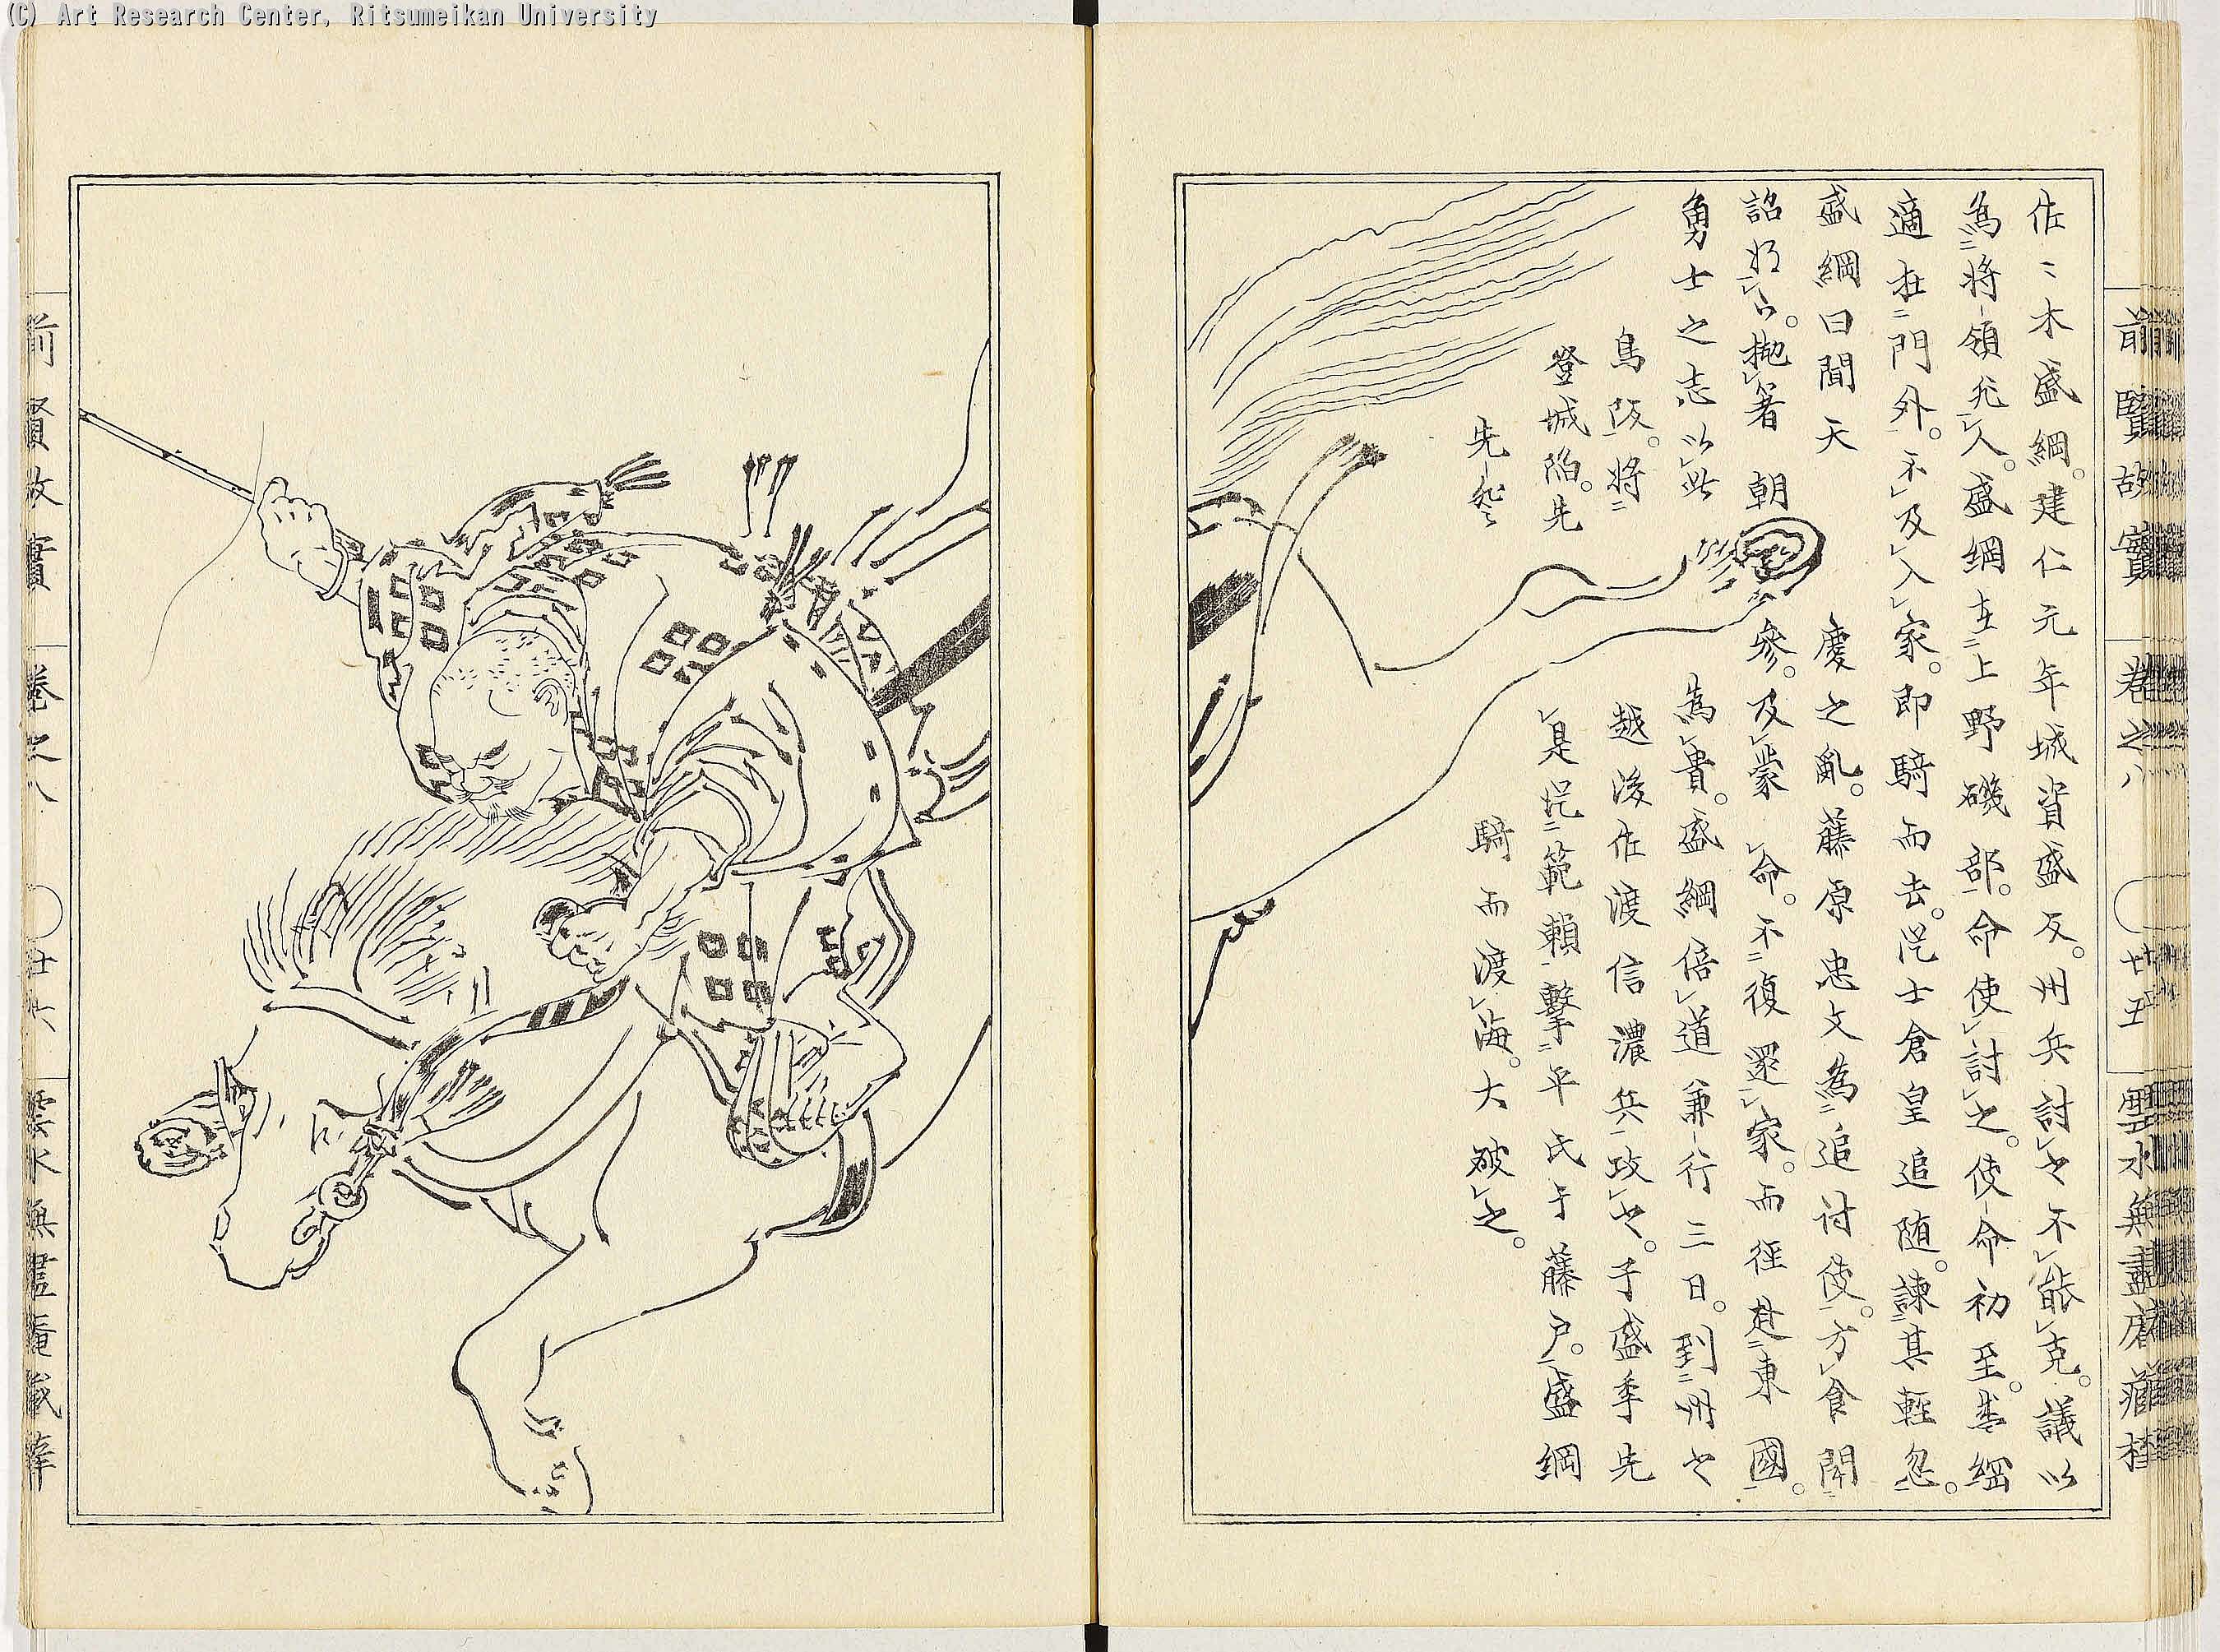 (C) Art Research Center, Ritsumeikan University
前賢故實 卷之八 ○ 廿五 雲水無盡庵藏梓
佐〻木盛綱。建仁元年城資盛反。州兵討之不能克。議以
為將領无人。盛綱在上野磯部。命使討之。使命初至。盛綱
適在門外。不及入家。即騎而去。從士倉皇追随。諫其輕忽。
盛綱曰聞天慶之亂。藤原忠文為追討使。方食聞
詔 抛箸朝參。及蒙命。不復還家。而徑赴東國。
勇士之志以此為貴。盛綱倍道兼行三日。到州之
鳥阪。將越後佐渡信濃兵攻之。子盛季先
登城陷。先是從範頼擊平氏于藤戶。盛綱
先衆騎而渡海。大破之。
前賢故實 卷之八 ○ 廿六 雲水無盡庵藏梓